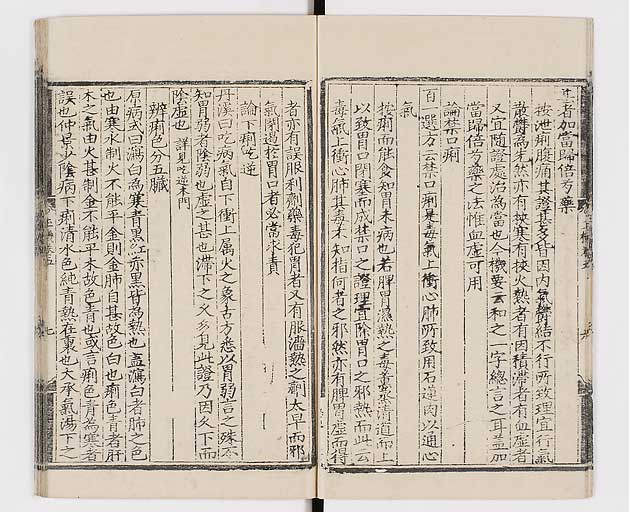 者加當歸倍芍藥
按泄痢腹痛其證甚多皆因内氣鬱結不行所致理宜行氣
散鬱為先然亦有挾寒有挾火熱者有因積滯者有血虛者
又宜隨證處治為當也今機要云和之一字總言之耳蓋加
當歸倍芍藥之法惟血虛可用
論禁口痢
百一選方云禁口痢是毒氣上衝心肺所致用石蓮肉以通心
氣
按痢而能食知胃未病也若脾胃濕熱之毒熏蒸清道而上
以致胃口閉塞而成禁口之證理宜除胃口之邪熱而此云
毒氣上衝心肺其毒未知指何者之邪然亦有脾胃虛而得
者亦有誤服利劑藥毒犯胃者又有服濇熱之劑太早而邪
氣閉遏於胃口者必當求責
論下痢吃逆
丹溪曰吃病氣自下衝上属火之象古方悉以胃弱言之殊不
知胃弱者陰弱也虛之甚也滯下之久多見此證乃因久下而
陰虛也 詳見吃逆本門
辨痢色分五臟
原病式曰瀉白為寒青黑紅赤黑皆為熱也盖瀉白者肺之色
也由寒水制火不能平金則金肺自甚故色白也痢色青者肝
木之氣由火甚制金不能平木故色青也或言痢色青為寒者
誤也仲景少陰病下痢清水色純青熱在裏也大承氣湯下之